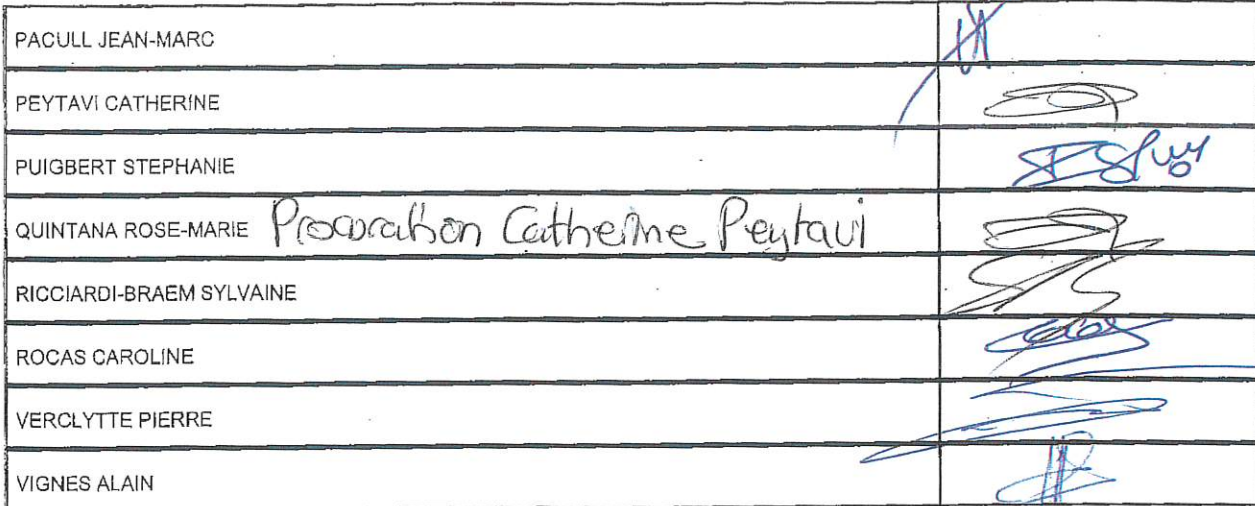 PACULL JEAN-MARC
PEYTAVI CATHERINE
PUIGBERT STEPHANIE
QUINTANA ROSE-MARIE Procuration Catherine Peytavi
RICCIARDI-BRAEM SYLVAINE
ROCAS CAROLINE
VERCLYTTE PIERRE
VIGNES ALAIN